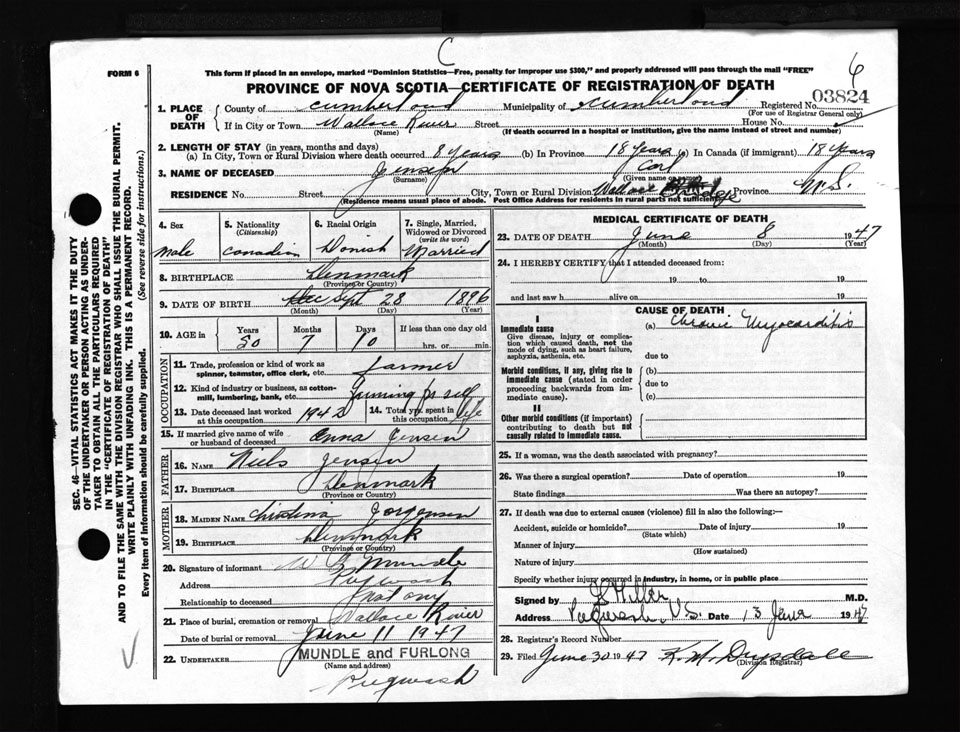 C
6
FORM 6
This form if placed in an envelope, marked "Dominion Statistics—Free, penalty for improper use $300," and properly addressed will pass through the mail "FREE"
PROVINCE OF NOVA SCOTIA—CERTIFICATE OF REGISTRATION OF DEATH
03824
1. PLACE OF DEATH County of Cumberland Municipality of Cumberland Registered No.
(For use of Registrar General only)
If in City or Town Wallace River Street House No.
(Name) (If death occurred in a hospital or institution, give the name instead of street and number)
2. LENGTH OF STAY (in years, months and days)
(a) In City, Town or Rural Division where death occurred 8 years (b) In Province 18 years (c) In Canada (if immigrant) 18 years
3. NAME OF DECEASED Jensen Carl
(Surname) (Given name or names)
RESIDENCE No. Street City, Town or Rural Division Wallace Bridge Province N.S.
(Residence means usual place of abode. Post Office Address for residents in rural parts not sufficient)
4. Sex
male
5. Nationality
(Citizenship)
Canadian
6. Racial Origin
Danish
7. Single, Married, Widowed or Divorced
(write the word)
Married
8. BIRTHPLACE Denmark
(Province or Country)
9. DATE OF BIRTH Sept 28 1896
(Month) (Day) (Year)
10. AGE in Years Months Days If less than one day old
50 7 10 hrs. or min.
OCCUPATION
11. Trade, profession or kind of work as spinner, teamster, office clerk, etc. farmer
12. Kind of industry or business, as cotton-mill, lumbering, bank, etc. Farming for self
13. Date deceased last worked at this occupation 1942
14. Total yrs. spent in this occupation life
15. If married give name of wife or husband of deceased Anna Jensen
FATHER
16. NAME Niels Jensen
17. BIRTHPLACE Denmark
(Province or Country)
MOTHER
18. MAIDEN NAME Christina Jorgensen
19. BIRTHPLACE Denmark
(Province or Country)
20. Signature of informant Mundle
Address Pugwash
Relationship to deceased
21. Place of burial, cremation or removal Wallace River
Date of burial or removal June 11 1947
22. UNDERTAKER MUNDLE and FURLONG
(Name and address)
Pugwash
MEDICAL CERTIFICATE OF DEATH
23. DATE OF DEATH June 8 1947
(Month) (Day) (Year)
24. I HEREBY CERTIFY that I attended deceased from:
19 to 19
and last saw h alive on 19
CAUSE OF DEATH
I
Immediate cause
Give disease, injury or complication which caused death, not the mode of dying, such as heart failure, asphyxia, asthenia, etc.
(a) Chronic Myocarditis
due to
Morbid conditions, if any, giving rise to immediate cause (stated in order proceeding backwards from immediate cause).
(b)
due to
(c)
II
Other morbid conditions (if important) contributing to death but not causally related to immediate cause.
25. If a woman, was the death associated with pregnancy?
26. Was there a surgical operation? Date of operation 19
State findings Was there an autopsy?
27. If death was due to external causes (violence) fill in also the following:—
Accident, suicide or homicide? Date of injury 19
(State which)
Manner of injury
(How sustained)
Nature of injury
Specify whether injury occurred in industry, in home, or in public place
Signed by Hiller M.D.
Address Pugwash, N.S. Date 13 June 1947
28. Registrar's Record Number
29. Filed June 30 1947 Drysdale
(Division Registrar)
SEC. 46—VITAL STATISTICS ACT MAKES IT THE DUTY
OF THE UNDERTAKER OR PERSON ACTING AS UNDER-
TAKER TO OBTAIN ALL THE PARTICULARS REQUIRED
IN THE "CERTIFICATE OF REGISTRATION OF DEATH"
AND TO FILE THE SAME WITH THE DIVISION REGISTRAR WHO SHALL ISSUE THE BURIAL PERMIT.
WRITE PLAINLY WITH UNFADING INK. THIS IS A PERMANENT RECORD.
Every item of information should be carefully supplied. (See reverse side for instructions.)